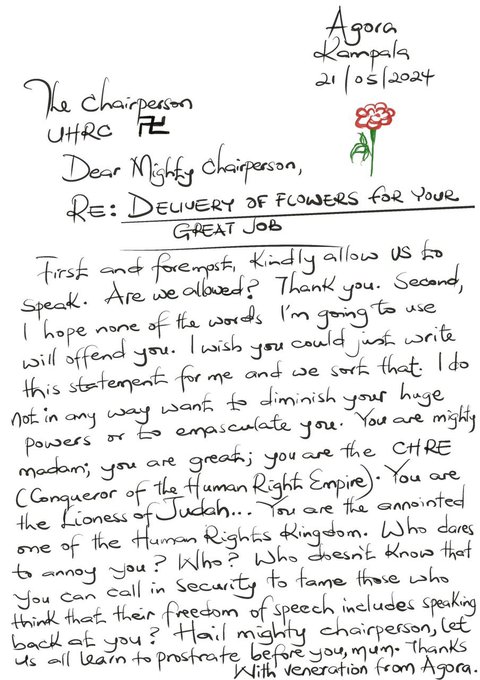 Agora
Kampala
21/05/2024
The Chairperson
UHRC 卍
Dear Mighty Chairperson,
RE: DELIVERY OF FLOWERS FOR YOUR
GREAT JOB
First and foremost, Kindly allow us to
speak. Are we allowed? Thank you. Second,
I hope none of the words I'm going to use
will offend you. I wish you could just write
this statement for me and we sort that. I do
not in any way want to diminish your huge
powers or to emasculate you. You are mighty
madam; you are great; you are the CHRE
(Conqueror of the Human Right Empire). You are
the Lioness of Judah... You are the annointed
one of the Human Rights Kingdom. Who dares
to annoy you? Who? Who doesn't know that
you can call in security to tame those who
think that their freedom of speech includes speaking
back at you? Hail mighty chairperson, let
us all learn to prostrate before you, mum. Thanks
With veneration from Agora.